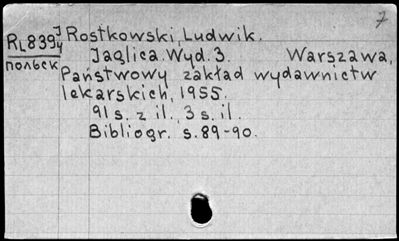 7
J Rostkowski, Ludwik.
RL839y
Jaglica. Wyd. 3. Warszawa,
польск
Państwowy zakład wydawnictw
lekarskich, 1955.
91 s. z il., 3 s. il.
Bibliogr. s. 89-90.